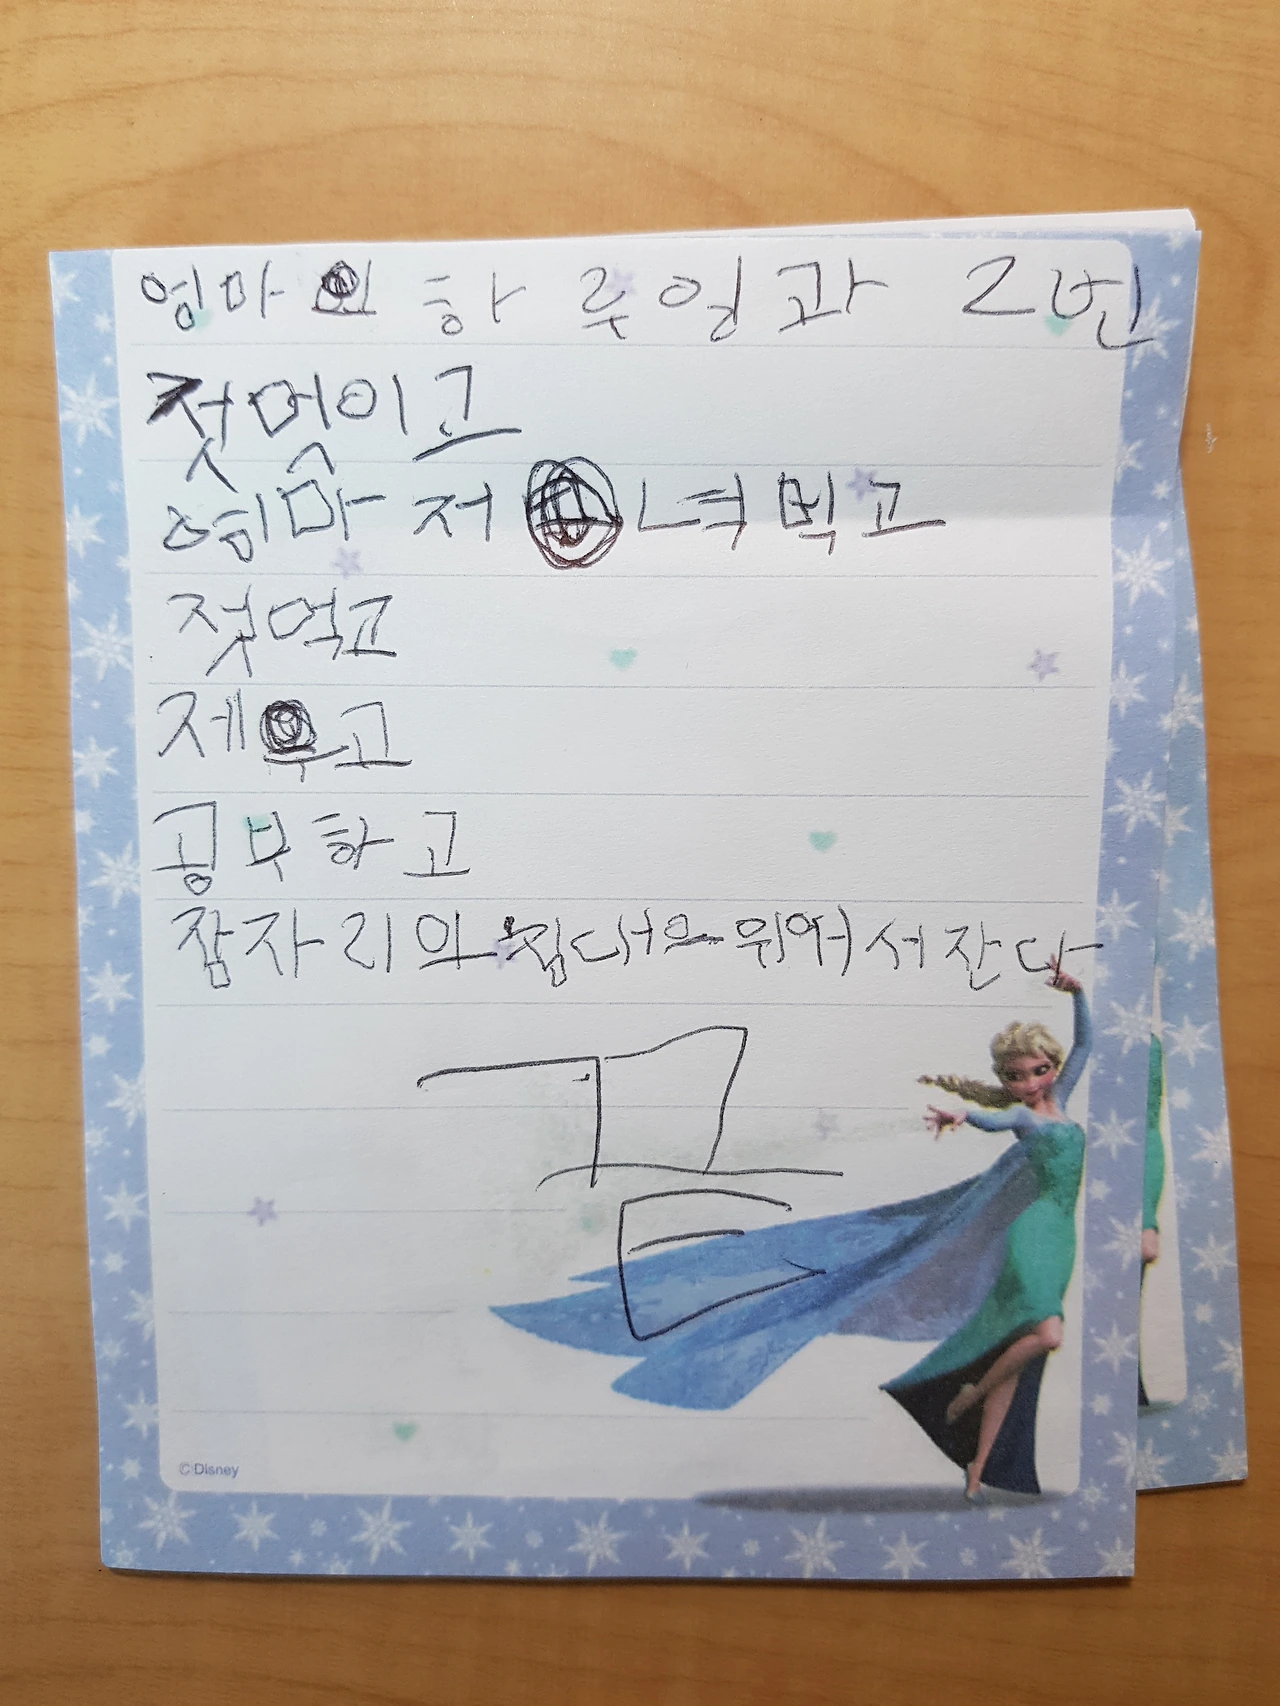 엄마의 하루일과 2번
젖먹이고
엄마 저녁먹고
젖먹고
제우고
공부하고
잠자리와 침대으 위어서 잔다
끝
©Disney